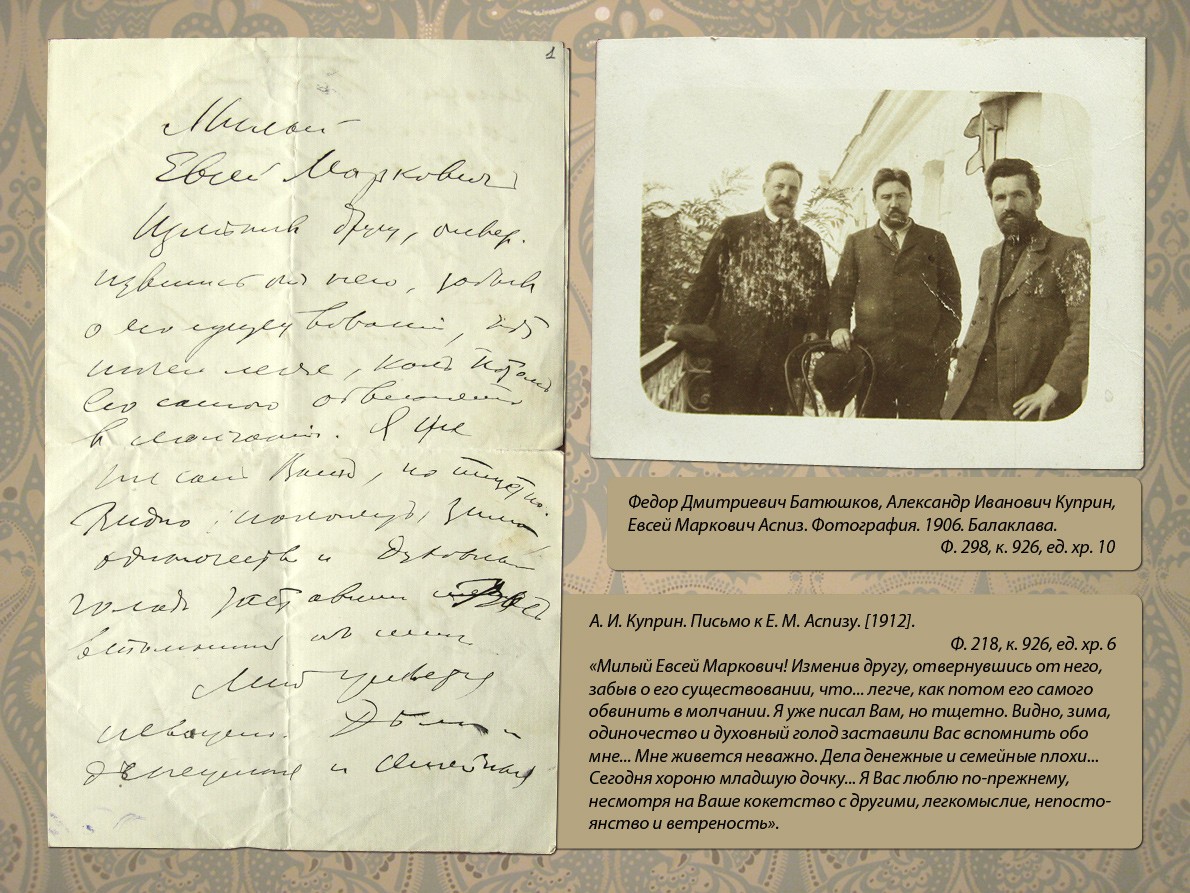 1
Милый
Евсей Маркович
Измѣнивъ другу, отвер-
нувшись отъ него, забывъ
о его существованіи, что
легче, какъ потомъ
его самого обвинять
в молчаніи. Я уже
писалъ Вамъ, но тщетно.
Видно, зима
одиночество и духовный
голодъ заставили Васъ
вспомнить обо мнѣ
Мнѣ живется
неважно. Дѣла
денежныя и семейныя
Федор Дмитриевич Батюшков, Александр Иванович Куприн,
Евсей Маркович Аспиз. Фотография. 1906. Балаклава.
Ф. 298, к. 926, ед. хр. 10
А. И. Куприн. Письмо к Е. М. Аспизу. [1912].
Ф. 218, к. 926, ед. хр. 6
«Милый Евсей Маркович! Изменив другу, отвернувшись от него,
забыв о его существовании, что... легче, как потом его самого
обвинить в молчании. Я уже писал Вам, но тщетно. Видно, зима,
одиночество и духовный голод заставили Вас вспомнить обо
мне... Мне живется неважно. Дела денежные и семейные плохи...
Сегодня хороню младшую дочку... Я Вас люблю по-прежнему,
несмотря на Ваше кокетство с другими, легкомыслие, непосто-
янство и ветреность».